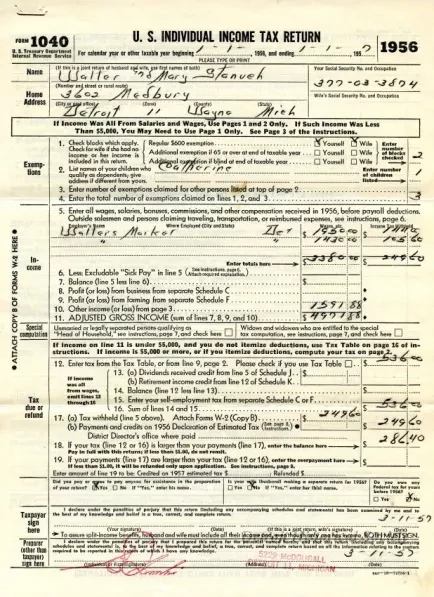 FORM 1040
U. S. Treasury Department
Internal Revenue Service
U. S. INDIVIDUAL INCOME TAX RETURN
For calendar year or other taxable year beginning 1-1-, 1956, and ending 1-1-, 1957
1956
PLEASE TYPE OR PRINT
Name
(If this is a joint return of husband and wife, use first names of both)
Walter and Mary
Your Social Security No. and Occupation
377-03-3874
Home Address
(Number and street or rural route)
3602 Medbury
Wife's Social Security No. and Occupation
(City or post office) (Zone) (County) (State)
Detroit 11 Wayne Mich
If Income Was All From Salaries and Wages, Use Pages 1 and 2 Only. If Such Income Was Less
Than $5,000, You May Need to Use Page 1 Only. See Page 3 of the Instructions.
Exemptions
1. Check blocks which apply. Check for wife if she had no income or her income is included in this return.
Regular $600 exemption Yourself Wife
Additional exemption if 65 or over at end of taxable year Yourself Wife
Additional exemption if blind at end of taxable year Yourself Wife
Enter number of blocks checked 2
2. List names of your children who qualify as dependents; give address if different from yours.
Catherine
Enter number of children listed 1
3. Enter number of exemptions claimed for other persons listed at top of page 2
4. Enter the total number of exemptions claimed on lines 1, 2, and 3 3
ATTACH COPY B OF FORMS W-2 HERE
Income
5. Enter all wages, salaries, bonuses, commissions, and other compensation received in 1956, before payroll deductions.
Outside salesmen and persons claiming traveling, transportation, or reimbursed expenses, see instructions, page 6.
Employer's Name Where Employed (City and State) Wages, etc. Income Tax Withheld
Walters Market Det 1950 00
" " 1430 00 105 60
Enter totals here 3380 00 249 60
6. Less Excludable "Sick Pay" in line 5 (See instructions, page 6. Attach required explanation.)
7. Balance (line 5 less line 6)
8. Profit (or loss) from business from separate Schedule C
9. Profit (or loss) from farming from separate Schedule F
10. Other income (or loss) from page 3 1591 88
11. ADJUSTED GROSS INCOME (sum of lines 7, 8, 9, and 10) 4971 88
Special computation
Unmarried or legally separated persons qualifying as "Head of Household," see instructions, page 7, and check here
Widows and widowers who are entitled to the special tax computation, see instructions, page 7, and check here
If income on line 11 is under $5,000, and you do not itemize deductions, use Tax Table on page 16 of instructions.
If income is $5,000 or more, or if you itemize deductions, compute your tax on page 2.
Tax due or refund
12. Enter tax from the Tax Table, or from line 9, page 2. Please check if you use Tax Table 536 00
If income was all from wages, omit lines 13 through 16
13. (a) Dividends received credit from line 5 of Schedule J
(b) Retirement income credit from line 12 of Schedule K
14. Balance (line 12 less line 13)
15. Enter your self-employment tax from separate Schedule C or F
16. Sum of lines 14 and 15 536 00
17. (a) Tax withheld (line 5 above). Attach Forms W-2 (Copy B) 249 60
(b) Payments and credits on 1956 Declaration of Estimated Tax (See page 8, Instructions) 249 60
District Director's office where paid
18. If your tax (line 12 or 16) is larger than your payments (line 17), enter the balance here 286 40
Pay in full with this return; if less than $1.00, do not remit.
19. If your payments (line 17) are larger than your tax (line 12 or 16), enter the overpayment here
If less than $1.00, it will be refunded only upon application. See Instructions, page 8.
Enter amount of line 19 to be: Credited on 1957 estimated tax $ ; Refunded $
Did you pay or agree to pay anyone for assistance in the preparation of your return? Yes No If "Yes," enter his name.
Is your wife (husband) making a separate return for 1956? Yes No If "Yes," enter her (his) name.
Do you owe any Federal tax for years before 1956? Yes No
Taxpayer sign here
I declare under the penalties of perjury that this return (including any accompanying schedules and statements) has been examined by me and to the best of my knowledge and belief is a true, correct, and complete return.
3-11-57
(Your signature) (Date) (If this is a joint return, wife's signature) (Date)
To assure split-income benefits, husband and wife must include all their income and, even though only one has income, BOTH MUST SIGN.
Preparer (other than taxpayer) sign here
I declare under the penalties of perjury that I prepared this return for the person(s) named herein; and that this return (including any accompanying schedules and statements) is, to the best of my knowledge and belief, a true, correct, and complete return based on all the information relating to the matters required to be reported in this return of which I have any knowledge.
3-11-57
McDOUGALL
DETROIT 11, MICHIGAN
(Address) (Date)